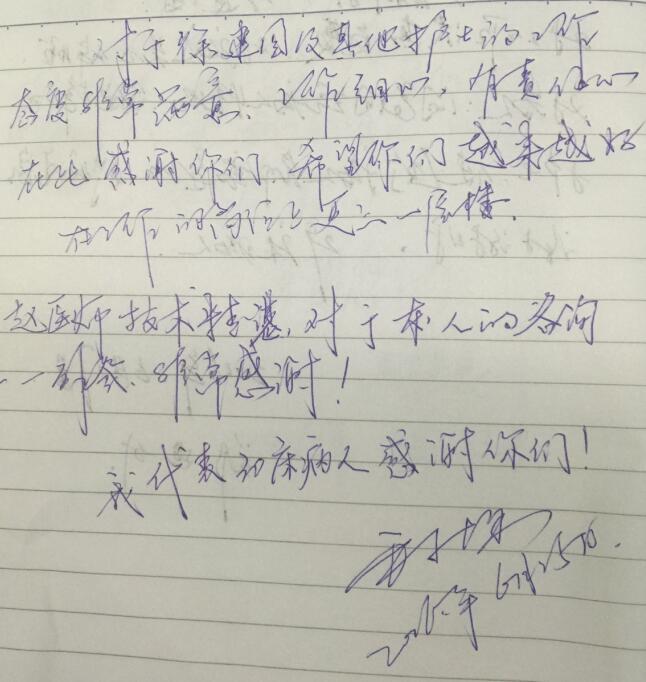 对于徐建国及其他护士的工作
态度非常满意、工作细心，有责任心
在此感谢你们、希望你们越来越好
在工作的岗位上更上一层楼.
赵医师技术精湛，对于本人的咨询
一一解答、非常感谢！
我代表 床病人感谢你们！
2016年6月25日.